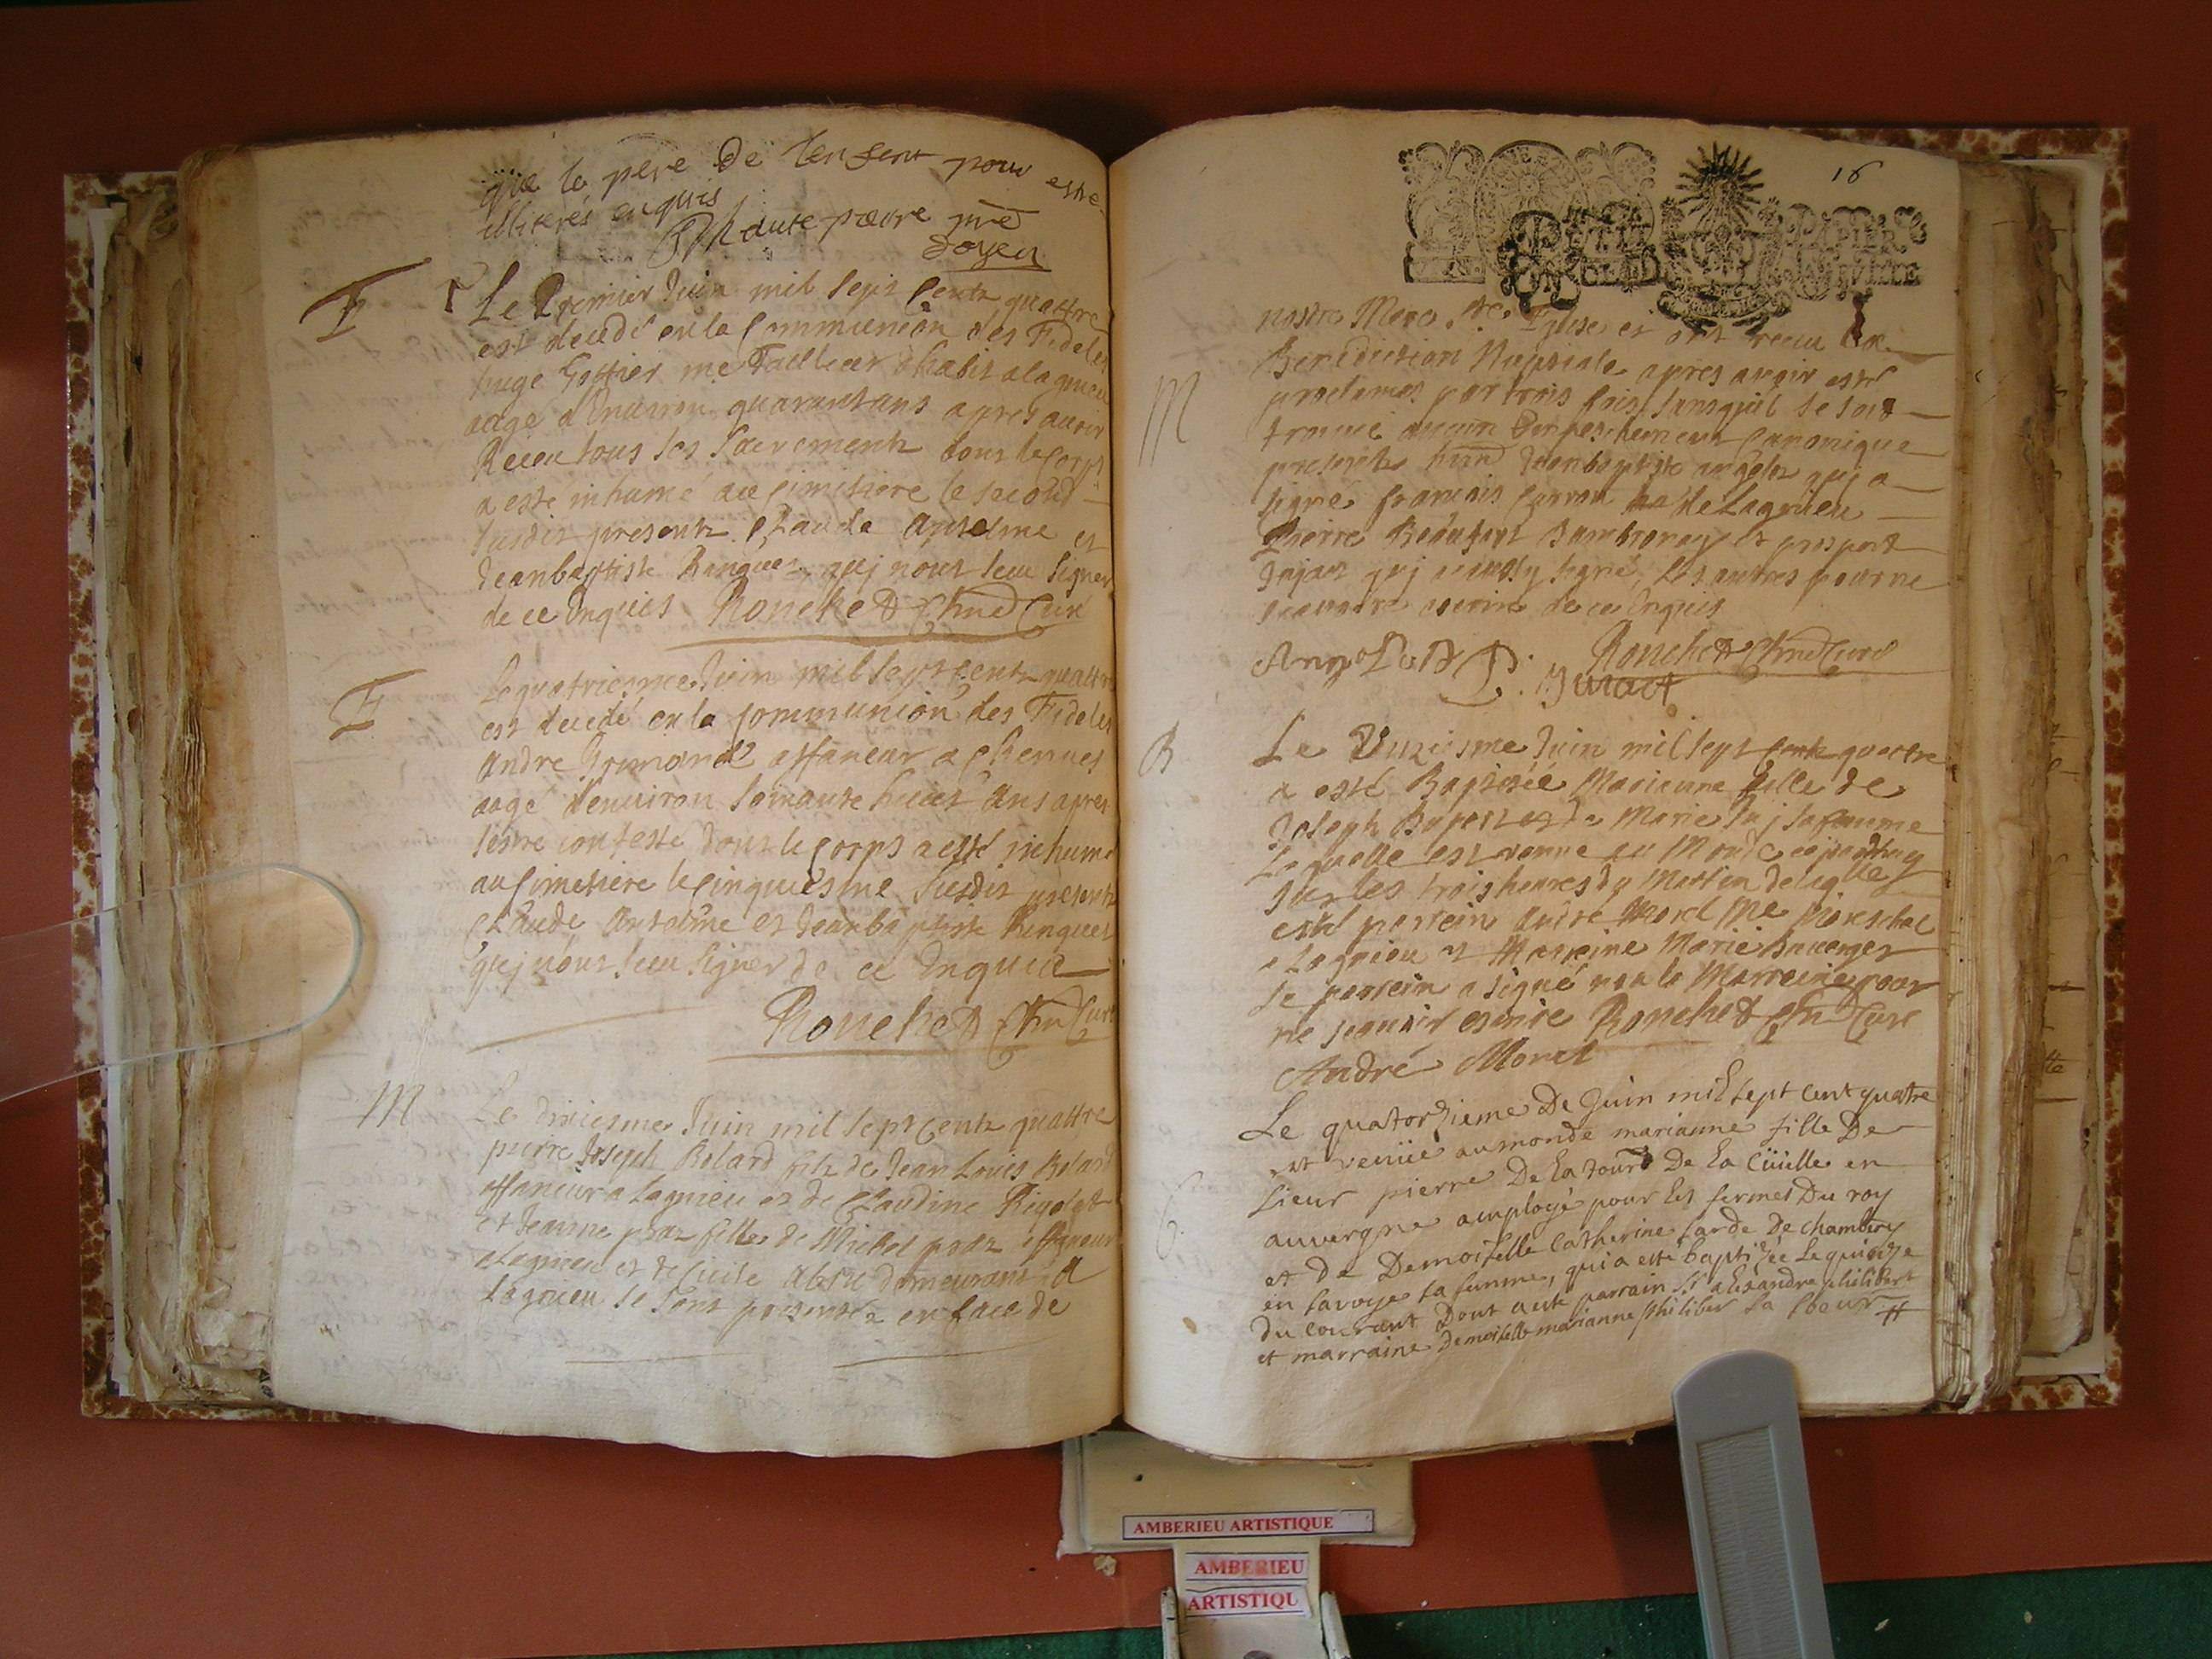 que le pere de lenfent pour estre
illiterés enquis
Dhautepierre pre
doyen
F
Le Premier Juin mil sept Cents quattre
est decedé en la Communion des Fideles
hugé Gottier me Tailleur d'habit a lagnieu
aagé d'Enuiron quarantans apres auoir
Receu tous les Sacrements dont le Corps
a esté inhumé au Cimitiere le second
susdit presents Claude Antelme et
Jeanbaptiste Ringuet quj n'ont sceu signer
de ce Enquis Ronchet Chne Curé
F
Le quatriesme Juin mil sept Cents quattre
est decedé en la Communion des Fideles
Andre affaneur a
aagé d'enuiron soixante huict Ans apres
s'estre confessé dont le Corps a esté inhumé
au Cimetiere le Cinquiesme susdit presents
Claude Antelme et Jeanbaptiste Ringuet
quj n'ont sceu signer de ce Enquis
Ronchet Chne Curé
M
Le dixiesme Juin mil sept Cents quattre
pierre Joseph Bolard fils de Jean Louis Bolard
affaneur a Lagnieu et de Claudine Rigolet
et Jeanne praz fille de Michel praz affaneur
a Lagnieu et de demeurant a
Lagnieu se sont presentés en face de
16
PAPIER
nostre Mere Ste Eglise et ont receu la
Benediction Nuptiale apres auoir esté
M
proclamés par trois fois sans qu'il se soit
trouué aucun Empeschement Canonique
presents Jeanbaptiste quj a
signé francois de Lagnieu
Pierre et prospert
quj a aussy signé, les autres pour ne
scauoir escrire de ce Enquis
Ronchet Chne Curé
B
Le Unziesme Juin mil sept Cents quattre
a esté Baptisée Marienne fille de
Joseph et de Marie sa femme
Laquelle est venue au Monde
sur les trois heures du Mattin de laqlle
esté parrein André Morel Me Mareschal
a Lagnieu et Marreine Marie
le parrein a signé non la Marreine pour
ne scauoir escrire Ronchet Chne Curé
André Morel
Le quatorzieme De Juin mil sept cent quatre
B
est venüe au monde marianne fille De
sieur pierre De la tour De la en
auvergne amployé pour les fermes Du roy
et de Demoiselle Catherine sarde De chambery
en savoye sa femme, qui a esté baptizée le quinze
du courant Dont a esté parrain Sr alexandre philibert
et marraine Demoiselle marianne philibert sa soeur #
AMBERIEU ARTISTIQUE
AMBERIEU
ARTISTIQU